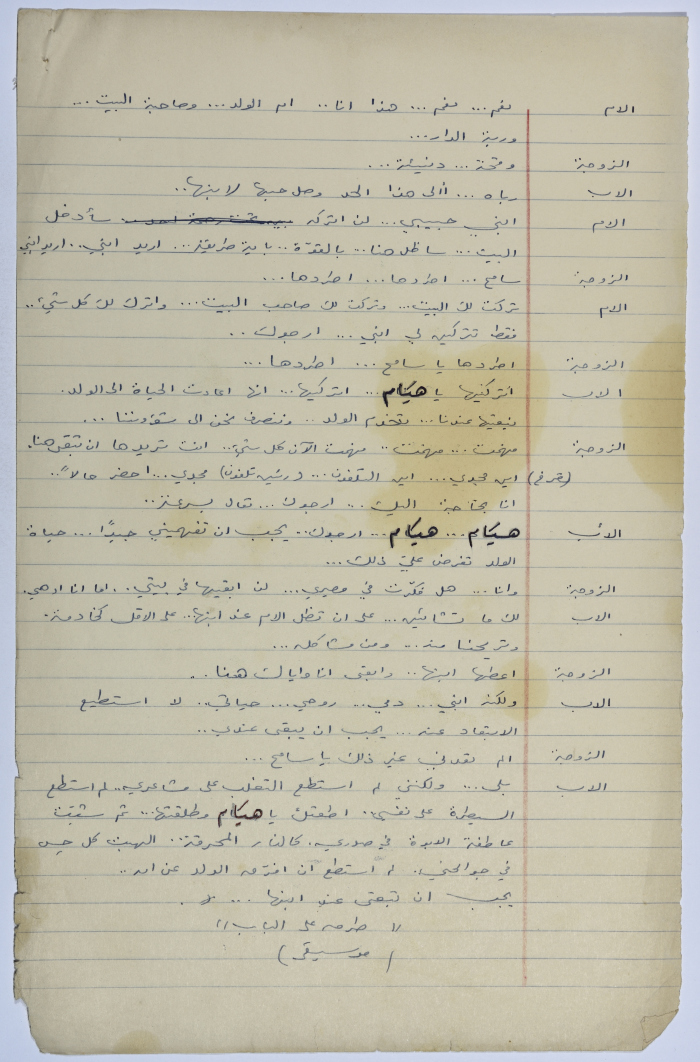 الام نعم... نعم... هذا انا.. ام الولد... وصاحبة البيت...
وربة الدار...
الزوجة وقحة... دنيئة...
الاب رباه... أالى هذا الحد وصل حبها لابنها..
الام ابني حبيبي... لن اتركه سأدخل
البيت... سأظل هنا.. بالقوة.. بأية طريقة... اريد ابني.. اريد ابني
الزوجة سامح... اطردها... اطردها...
الام تركت لك البيت... وتركت لك صاحب البيت... واترك لك كل شيء..
فقط تتركين لي ابني... ارجوك..
الزوجة اطردها يا سامح... اطردها...
الاب اتركيها يا هيام... اتركيها... انها اعادت الحياة الى الولد.
نبقيها عندنا... تخدم الولد.. وننصرف نحن الى شؤوننا...
الزوجة فهمت... فهمت.. فهمت الآن كل شيء.. انت تريدها ان تبقى هنا.
(تصرخ) اين مجدي... اين التلفون... (رنين تلفون) مجدي... احضر حالاً..
انا بحاجة اليك... ارجوك... تعال بسرعة..
الأب هيام... هيام... ارجوك.. يجب ان تفهميني جيدًا... حياة
الولد تفرض علي ذلك...
الزوجة وانا... هل فكرت في مصيري... لن ابقيها في بيتي.. اما انا او هي.
الاب لك ما تشائين... على ان تظل الام عند ابنها.. على الاقل كخادمة.
وتريحنا منه... ومن مشاكله...
الزوجة اعطها ابنها.. وابقى انا واياك هنا..
الاب ولكنه ابني... دمي... روحي... حياتي.. لا استطيع
الابتعاد عنه... يجب ان يبقى عندي..
الزوجة الم تعدني غير ذلك يا سامح...
الاب بلى... ولكنني لم استطع التغلب على مشاعري.. لم استطع
السيطرة على نفسي. اطعتك يا هيام وطلقتها... ثم شبت
عاطفة الابوة في صدري. كالنار المحرقة.. الهبت كل حس
في جوانحي. لم استطع ان افرق الولد عن امه..
يجب ان تبقى عند ابنها...
"طرق على الباب"
(موسيقى)